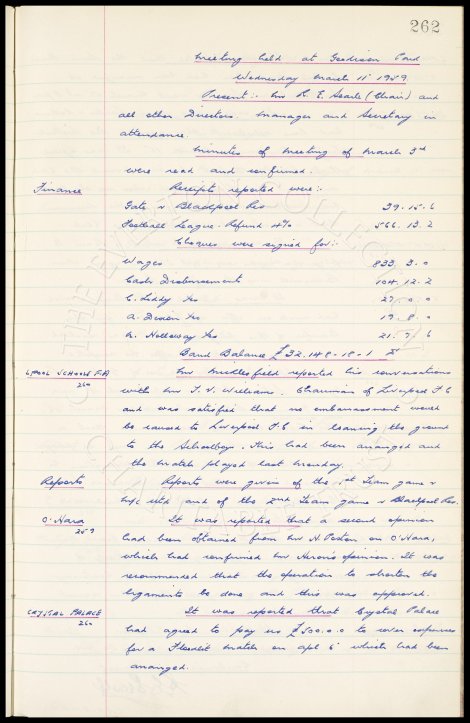 262
Meeting held at Goodison Park
Wednesday March 11th 1959.
Present:- Mr R. E. Searle (Chair) and
all other Directors. Manager and Secretary in
attendance.
Minutes of Meeting of March 3rd
were read and confirmed.
Finance Receipts reported were:-
Gate v Blackpool Res 39.15.6
Football League. Refund 4% 566.13.2
Cheques were signed for:-
Wages 833.3.0
Cash Disbursements 104.12.2
C. Leddy 27.0.0
A. Dixon 19.8.0
A. Holloway 21.7.6
Bank Balance £32.148-18-1
L'POOL SCHOOLS F.A. Mr Micklesfield reported his conversations
260 with Mr T. V. Williams. Chairman of Liverpool F.C
and was satisfied that no embarrassment would
be caused to Liverpool F.C in loaning the ground
to the Schoolboys. This had been arranged and
the match played last Monday.
Reports Reports were given of the 1st Team game v
M/c Utd and of the 2nd Team game v Blackpool Res.
O'Hara It was reported that a second opinion
259 had been obtained from Mr N. Poston on O'Hara,
which had confirmed Mr Heron's opinion. It was
recommended that the operation to shorten the
ligaments be done and this was approved.
CRYSTAL PALACE It was reported that Crystal Palace
260 had agreed to pay us £500.0.0 to cover expenses
for a Floodlit match on Apl 6th which had been
arranged.
THE EVERTON COLLECTION
CHARITABLE TRUST